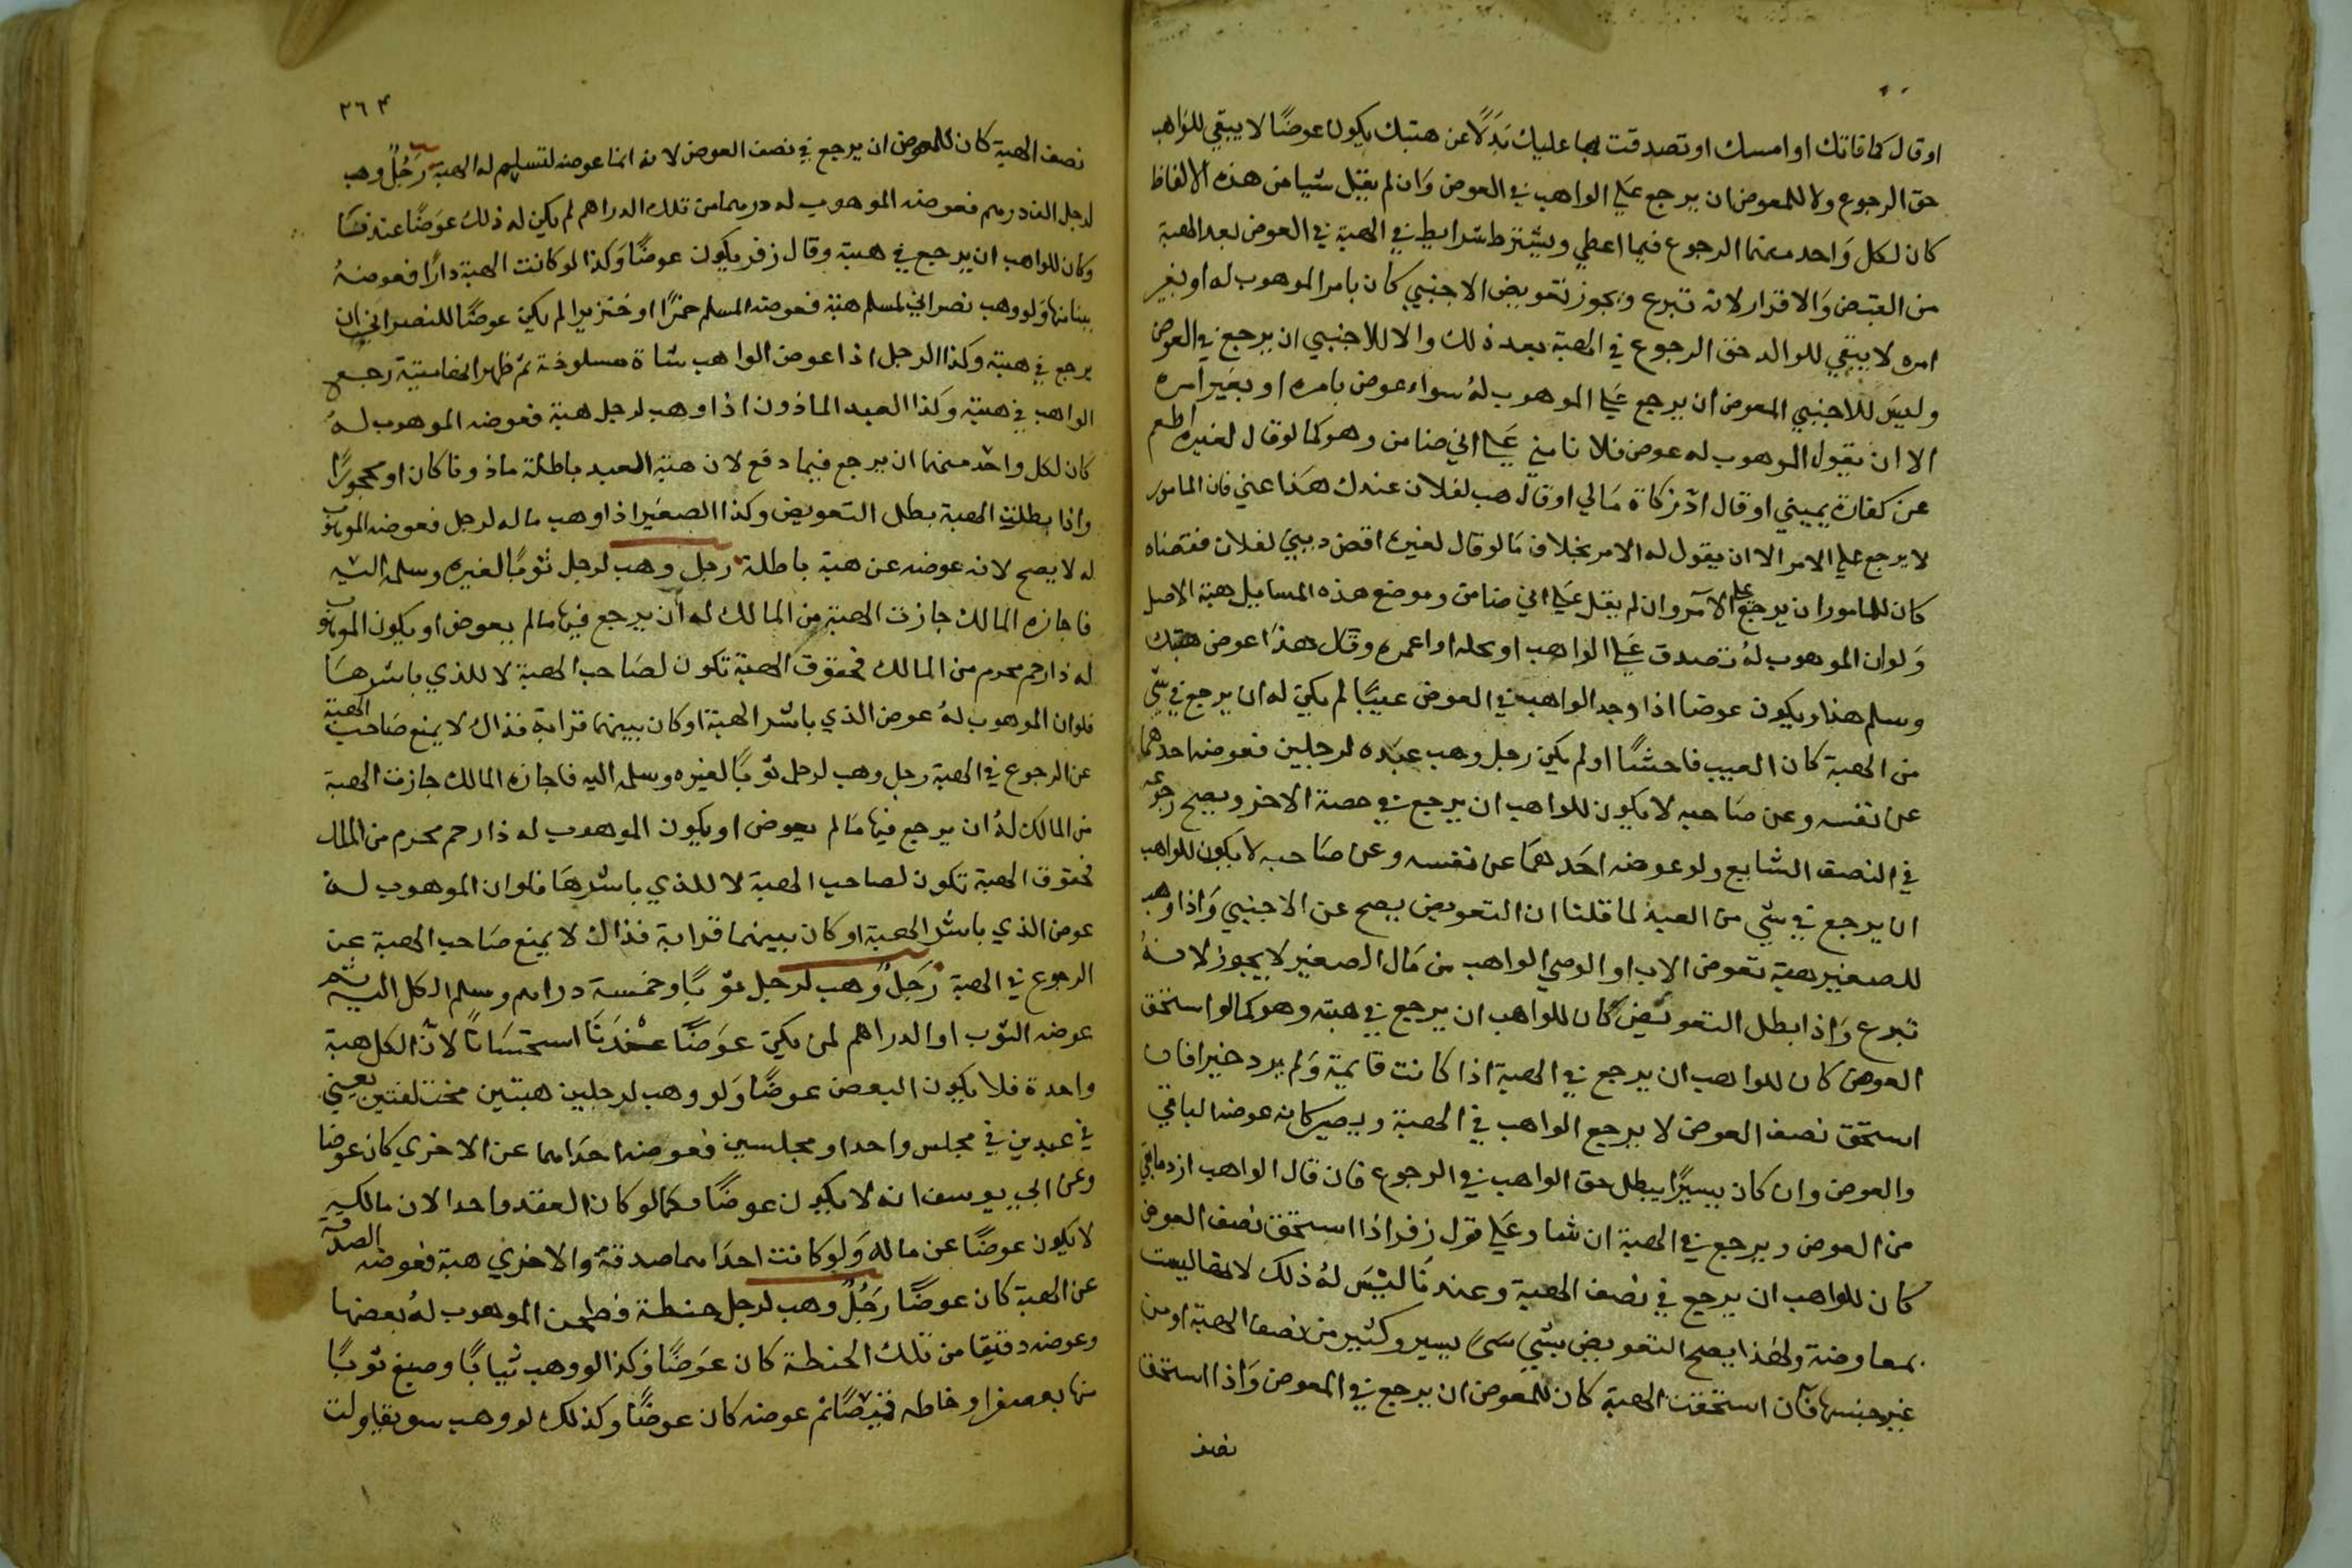 او قال كافاتك او امسك او تصدقت بها عليك بدلًا عن هبتك يكون عوضًا لا يبقي للواهب
حق الرجوع ولا للمعوض ان يرجع علي الواهب في العوض وان لم يقبل شيا من هذه الالفاظ
كان لكل واحد منهما الرجوع فيما اعطي ويشترط شرايط في الهبة في العوض لعد الهبة
من القبض والاقرار لانه تبرع ويجوز تعويض الاجنبي كان بامر الموهوب له او بغير
امره لا يبقي للوالد حق الرجوع في الهبة بعد ذلك والا للاجنبي ان يرجع في العوض
وليس للاجنبي المعوض ان يرجع علي الموهوب له سواء عوض بامره او بغير امره
الا ان يقول الموهوب له عوض فلانا مني علي اني ضامن وهو كما لو قال لغيره اطعم
عن كفارة يميني او قال ادّ زكاة مالي او قال هب لفلان عندك هذا عني فان المامور
لا يرجع علي الامر الا ان يقول له الامر بخلاف ما لو قال لغيره اقض ديني لفلان فقضاه
كان للمامور ان يرجع علي الآمر وان لم يقل علي اني ضامن وموضع هذه المسايل هبة الاصل
ولو ان الموهوب له تصدق علي الواهب او نحله او اعمره وقال هذا عوض هبتك
وسلم هذا ويكون عوضا اذا وجد الواهب في العوض عيبًا لم يكن له ان يرجع في شي
من الهبة كان العيب فاحشًا او لم يكن رجل وهب عبده لرجلين فعوضه احدهما
عن نفسه وعن صاحبه لا يكون للواهب ان يرجع في حصة الاخر ويصح رجوعه
في النصف الشايع ولو عوضه احدهما عن نفسه وعن صاحبه لا يكون للواهب
ان يرجع في شي من العبد لما قلنا ان التعويض يصح عن الاجنبي واذا وهب
للصغير هبة تعوض الاب او الوصي الواهب من مال الصغير لا يجوز لانه
تبرع واذا بطل التعويض كان للواهب ان يرجع في هبته وهو كما لو استحق
العوض كان للواهب ان يرجع في الهبة اذا كانت قايمة ولم يرد خيرا فان
استحق نصف العوض لا يرجع الواهب في الهبة ويصير كانه عوضه الباقي
والعوض وان كان يسيرًا يبطل حق الواهب في الرجوع فان قال الواهب ارد ما بقي
من العوض ويرجع في الهبة ان شا وعلي قول زفر اذا استحق نصف العوض
كان للواهب ان يرجع في نصف الهبة وعندنا ليس له ذلك لانها ليست
بمعاوضة ولهذا يصح التعويض بشي يسير وكثير من نصف الهبة او من
غير جنسها فان استحقت الهبة كان للمعوض ان يرجع في العوض واذا استحق
نصف
٢٦٣
نصف الهبة كان للمعوض ان يرجع في نصف العوض لانه انما عوضه لتسليم له الهبة رجلٌ وهب
لرجل الف درهم فعوضه الموهوب له درهما من تلك الدراهم لم يكن له ذلك عوضًا عندنا
وكان للواهب ان يرجع في هبته وقال زفر يكون عوضًا وكذا لو كانت الهبة دارًا فعوضهُ
ببنائها ولو وهب نصراني لمسلم هبة فعوضه المسلم خمرًا او خنزيرا لم يكن عوضًا للنصراني ان
يرجع في هبته وكذا الرجل اذا عوض الواهب شاة مسلوخة ثم ظهر انها ميتة رجع
الواهب في هبته وكذا العبد الماذون اذا وهب لرجل هبة فعوضه الموهوب له
كان لكل واحد منهما ان يرجع فيما دفع لان هبة العبد باطلة ماذونا كان او محجورًا
واذا بطلت الهبة بطل التعويض وكذا الصغير اذا وهب ماله لرجل فعوضه الموهوب
له لا يصح لانه عوضه عن هبة باطلة رجل وهب لرجل ثوبًا لغيره وسلمه اليه
فاجازه المالك جازت الهبة من المالك له ان يرجع فيها ما لم يعوض او يكون الموهوب
له ذا رحم محرم من المالك فحقوق الهبة تكون لصاحب الهبة لا للذي باشرها
فلو ان الموهوب لهُ عوض الذي باشر الهبة او كان بينهما قرابة فذاك لا يمنع صاحب الهبة
عن الرجوع في الهبة رجل وهب لرجل ثوبًا لغيره وسلمه اليه فاجازه المالك جازت الهبة
من المالك لهُ ان يرجع فيها ما لم يعوض او يكون الموهوب له ذا رحم محرم من المالك
فحقوق الهبة تكون لصاحب الهبة لا للذي باشرها فلو ان الموهوب له
عوض الذي باشر الهبة او كان بينهما قرابة فذاك لا يمنع صاحب الهبة عن
الرجوع في الهبة رجلٌ وهب لرجل ثوبًا وخمسة دراهم وسلم الكل اليه ثم
عوضه الثوب او الدراهم لم يكن عوضًا عندنا استحسانًا لان الكل هبة
واحدة فلا يكون البعض عوضًا ولو وهب لرجلين هبتين مختلفتين يعني
في عبدين في مجلس واحد او مجلسين فعوضه احداهما عن الاخري كان عوضا
وعن ابي يوسف انه لا يكون عوضًا كما لو كان العقد واحدا لان مالكه
لا يكون عوضًا عن ماله ولو كانت احداهما صدقة والاخري هبة فعوضه الصدقة
عن الهبة كان عوضًا رجلٌ وهب لرجل حنطة فطحن الموهوب لهُ بعضها
وعوضه دقيقا من تلك الحنطة كان عوضًا وكذا لو وهب ثيابًا وصبغ ثوبًا
منها بعصفر او خاطه قميصًا ثم عوضه كان عوضًا وكذلك لو وهب سويقا ولت